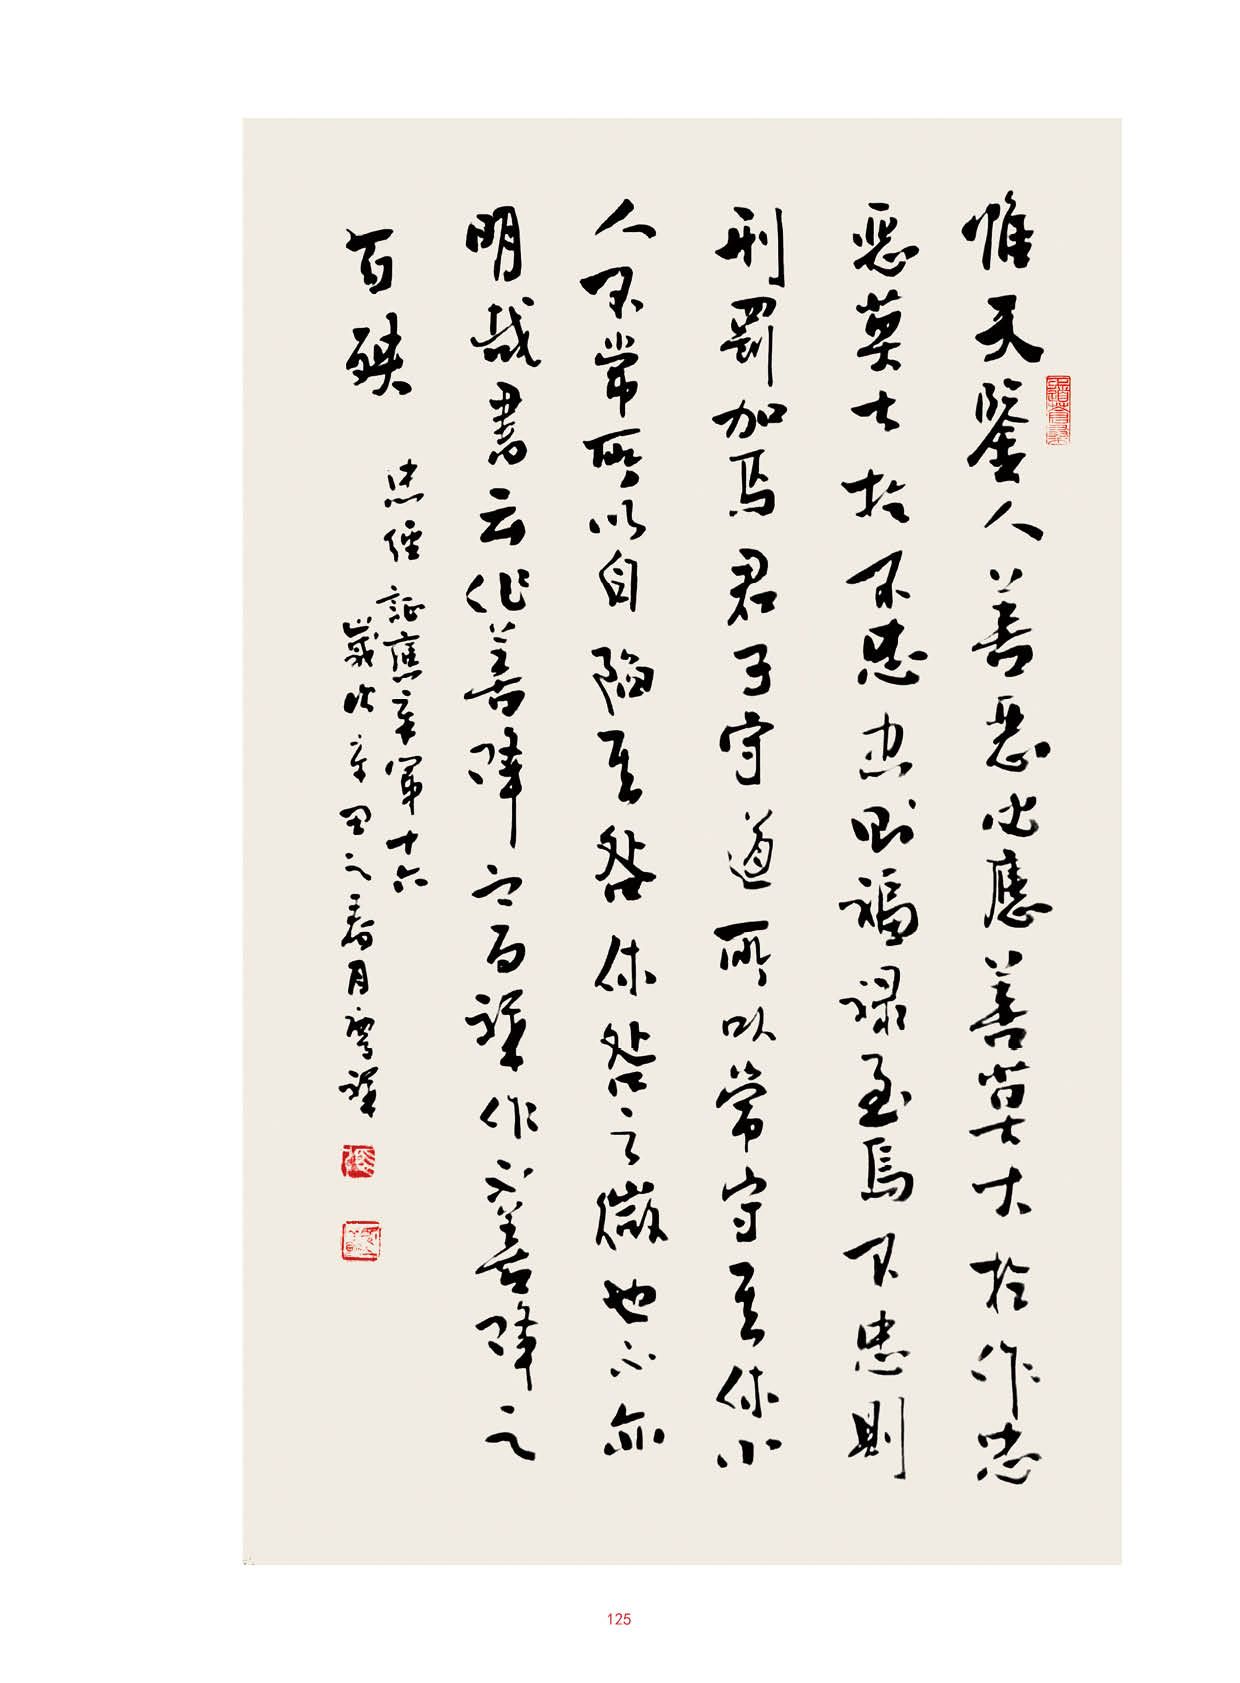 惟天鑒人善惡必應善莫大於作忠
惡莫大於不忠忠則福祿至焉不忠則
刑罰加焉君子守道所以常守其休小
人不常所以自陷其咎休咎之徵也不亦
明哉書云作善降之百祥作不善降之
百殃
忠經証應章第十六
歲次辛丑之春月雩祥
125